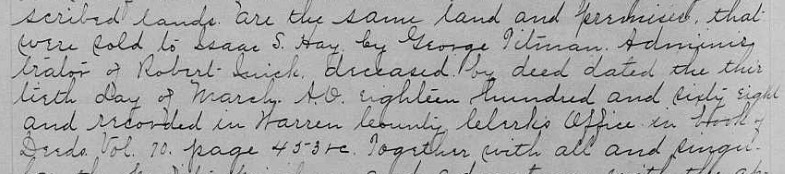 scribed lands. are the same land and premises, that
were sold to Isaac S. Hay by George Titman. Adminis
trator of Robert deceased by deed dated the thir
tieth Day of March. A.D. Eighteen Hundred and sixty Eight
and recorded in Warren County Clerks Office in book of
Deeds Vol. 70. page 453 &c. Together with all and singu-